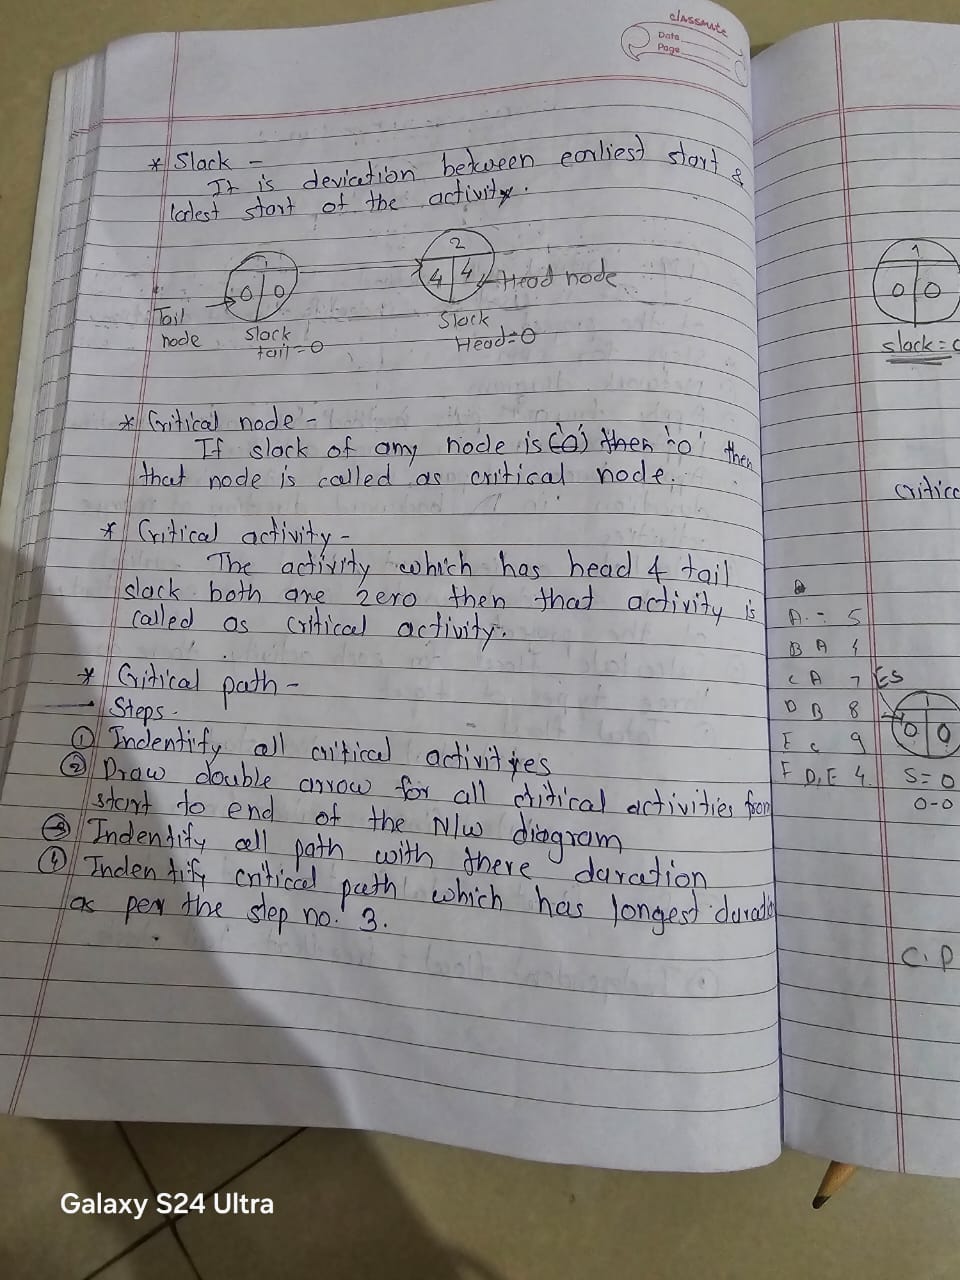 classmate
Date
Page
* Slack -
It is deviation between earliest start &
latest start of the activity.
1
0 0
2
4 4
Head node
Tail
node
Slack
tail=0
Slack
Head=0
* Critical node -
If slack of any node is (0) then '0' then
that node is called as critical node.
* Critical activity -
The activity which has head & tail
slack both are zero then that activity is
called as critical activity.
* Critical path -
Steps -
① Indentify all critical activities
② Draw double arrow for all critical activities from
start to end of the N/w diagram
③ Indentify all path with there duration
④ Indentify critical path which has longest duration
as per the step no. 3.
1
0 0
slack =
A - 5
B A 4
C A 7
D B 8
E C 9
F D,E 4.
ES
1
0 0
S= 0
0-0
C.P
Galaxy S24 Ultra